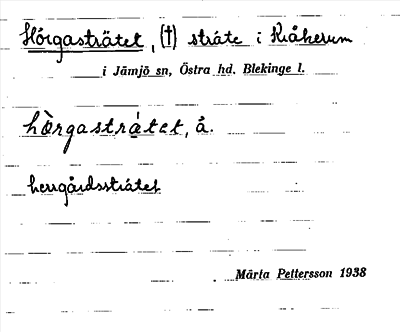 Hörgasträtet, (†) sträte i Kråkerum
i Jämjö sn, Östra hd. Blekinge l.
hòrgastrátet, å.
herrgårdssträtet
Märta Pettersson 1938